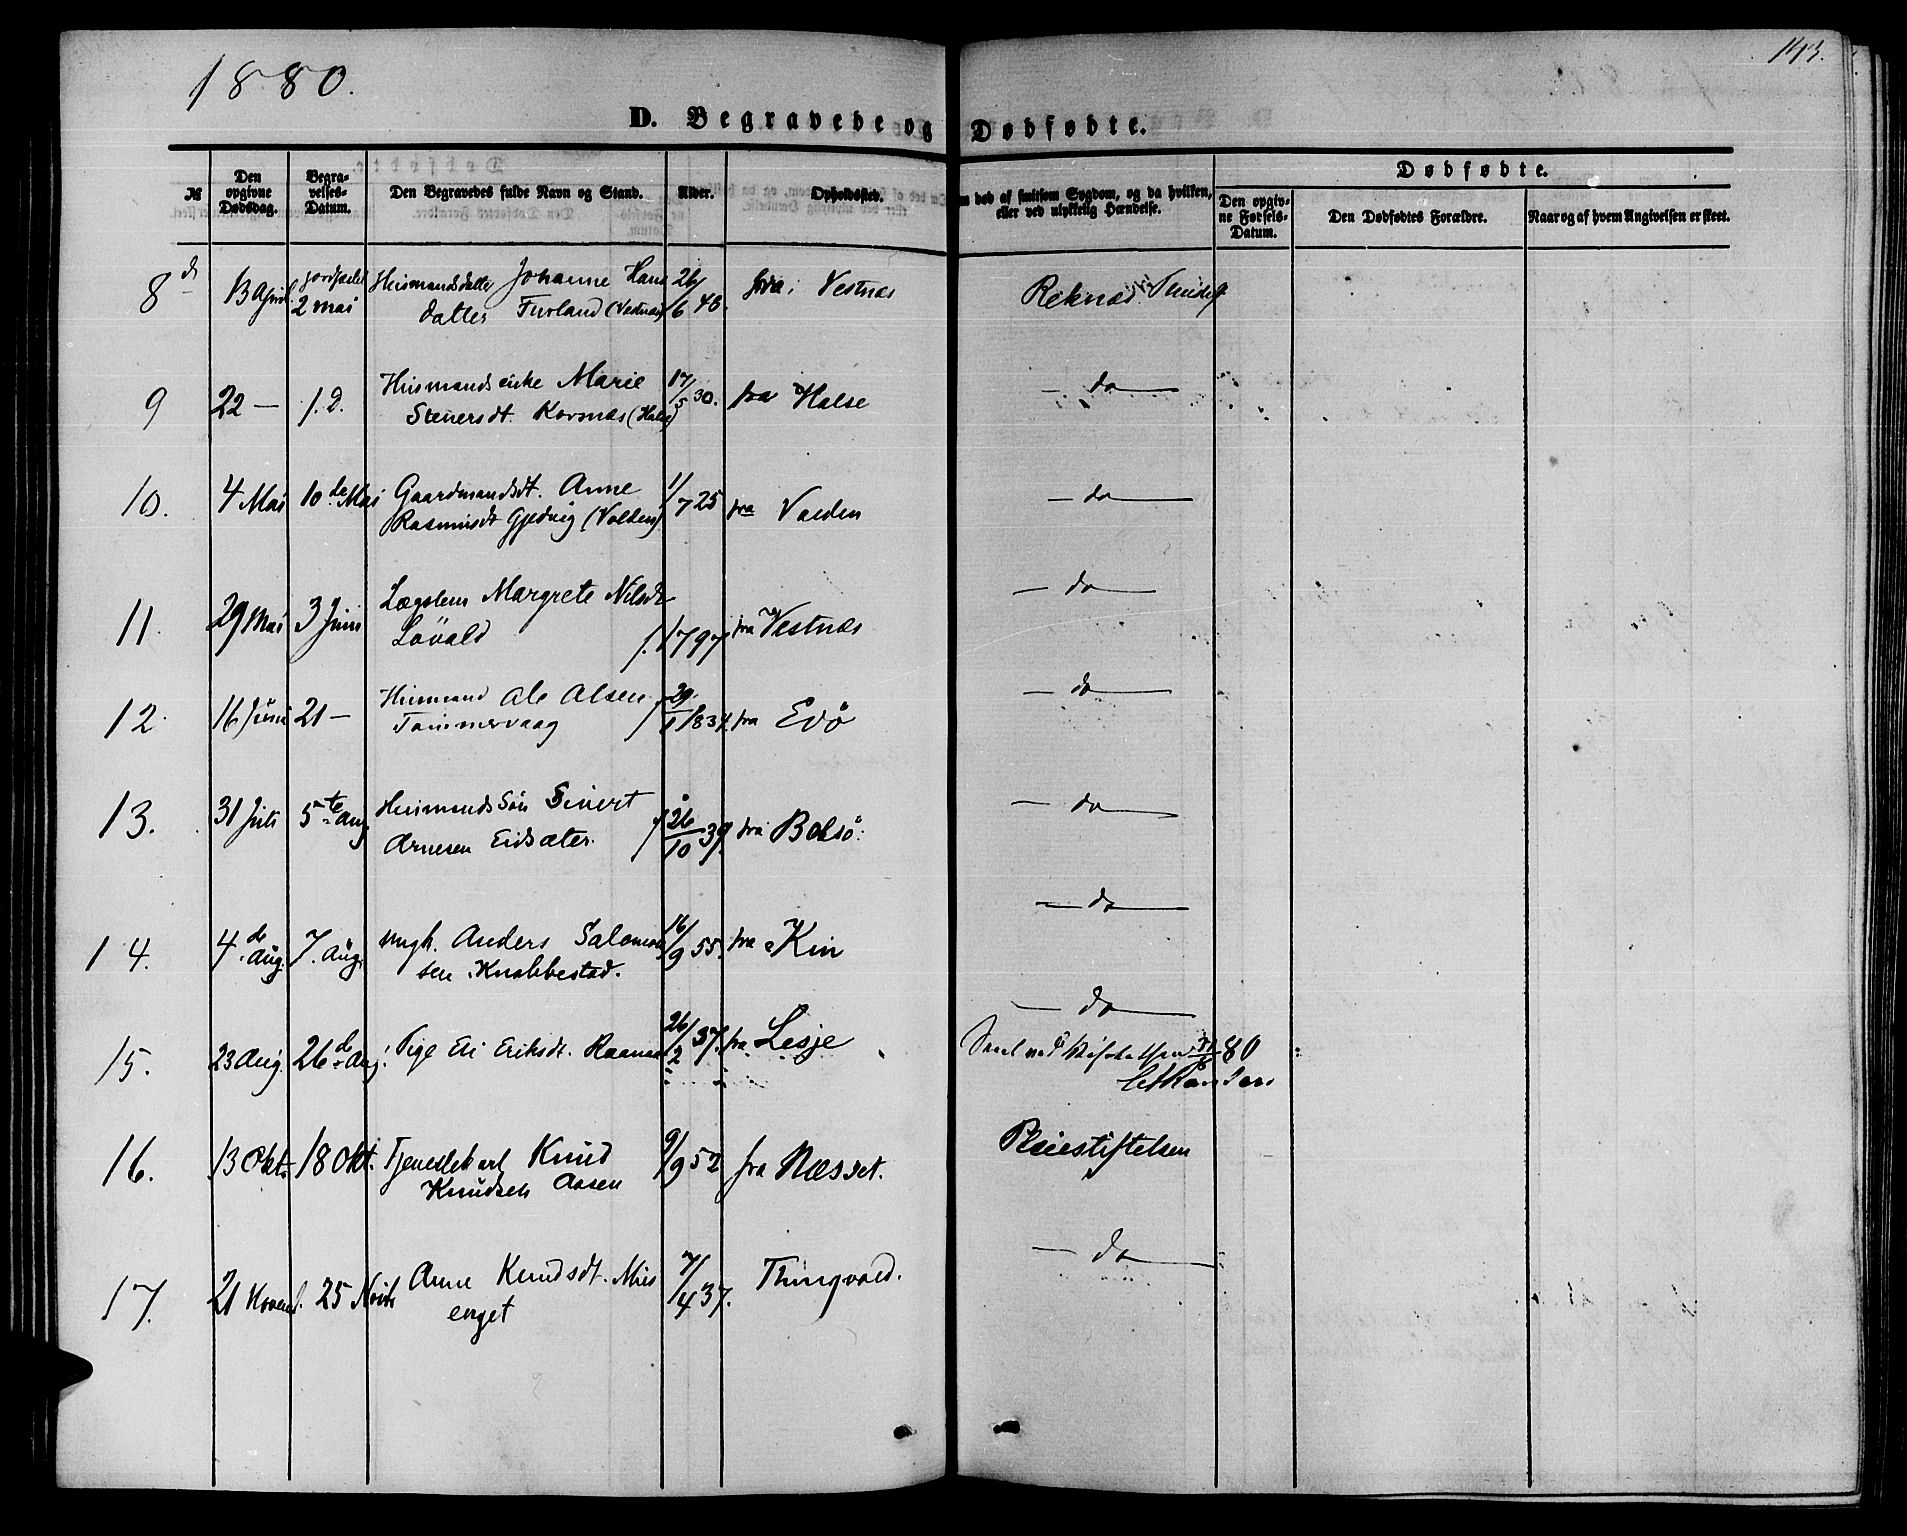 1880.
143.
D. Begravede og Dødfødte.
№
Den opgivne Dødsdag.
Begravelses-Datum.
Den Begravedes fulde Navn og Stand.
Alder.
Opholdssted.
død af smitsom Sygdom, og da hvilken,
eller ved ulykkelig Hændelse.
Dødfødte.
Den opgivne Førsels-Datum.
Den Dødfødtes Forældre.
Naar og af hvem Angivelsen er skeet.
8 13 April 2 mai Johanne Hans
datter Furland (Vestnæs) 26/6 48. fra Vestnæs Reknæs
9 22 — 1. d. Marie
Siversdt. Korsnæs (Halse) 17/5 30. fra Halse — do —
10. 4 Mai 10de Mai Gaardmandsdt. Anne
Rasmusdt Gjedvig (Volden) 1/7 25 fra Volden — do —
11. 29 Mai 3 Juni Lægslem Margrete Nilsdt
Løvold f. 1797 fra Vestnæs — do —
12. 16 Juni 21 — Husmand Ole Olsen
Tømmervaag f. 29/1 1834. fra Edø — do —
13. 31 Juli 5te Aug Husmands Søn Sivert
Arnesen Eidsæter. f 26/10 39. fra Bolsø. — do —
14. 4de Aug. 7. Aug. ungk. Anders Salomon
sen Knabbestad. 16/9 55. fra Kin — do —
15. 23 Aug. 26de Aug. Pige Eli Eriksdt. 26/2 37. fra Lesje — do —
80
16. 13 Okt. 18 Okt. Tjenestekarl Knud
Knudsen Aasen 9/9 52 fra Næsset. Pleiestiftelsen
17. 21 Novemb. 25 Novb Anne Knudsdt. Mis
enget 7/4 37. Thingvold. — do —